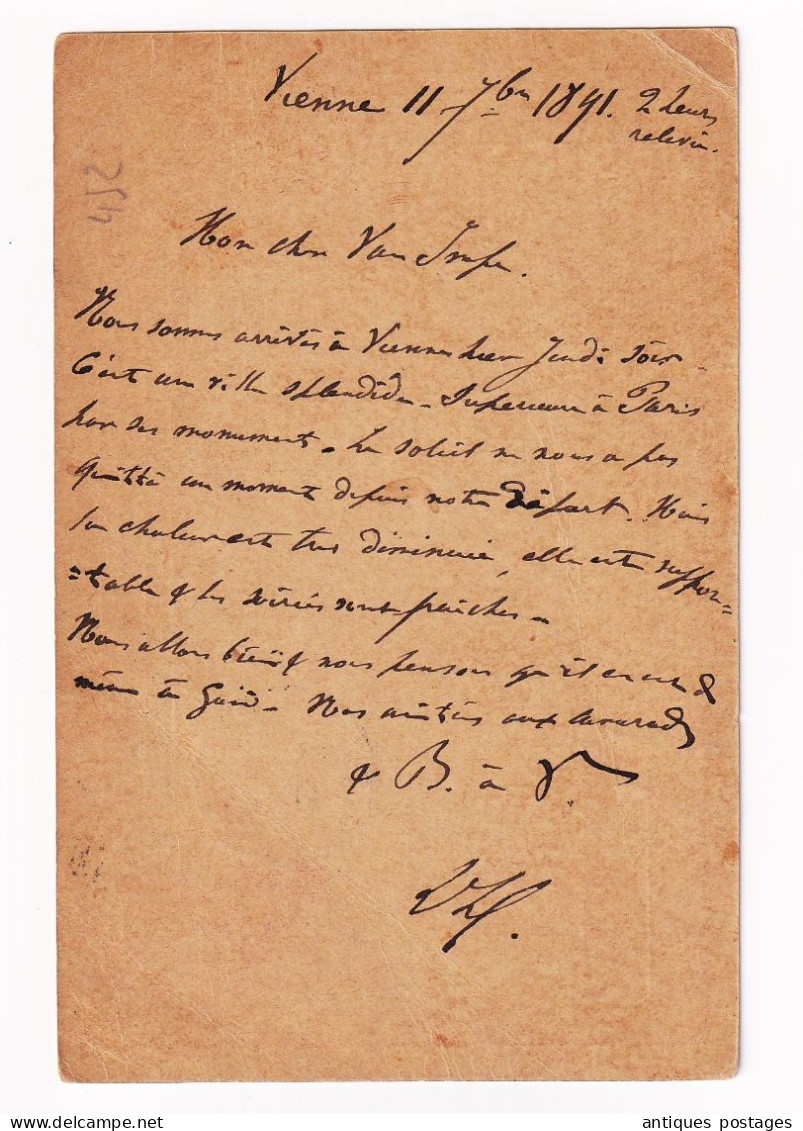 Vienne 11 7bre 1891. 2 heures
relevée.
452
Mon cher Van Impe.
Nous sommes arrivés à Vienne hier Jeudi soir
C'est une ville splendide - Supérieure à Paris
par ses monuments. Le soleil ne nous a pas
quitté un moment depuis notre départ. Mais
la chaleur est très diminuée, elle est suppor=
=table & les soirées sont fraîches -
Nous allons bien & nous pensons qu'il en est de
même à Gand - Nos amitiés aux camarades
& B. à V.
antiques postages